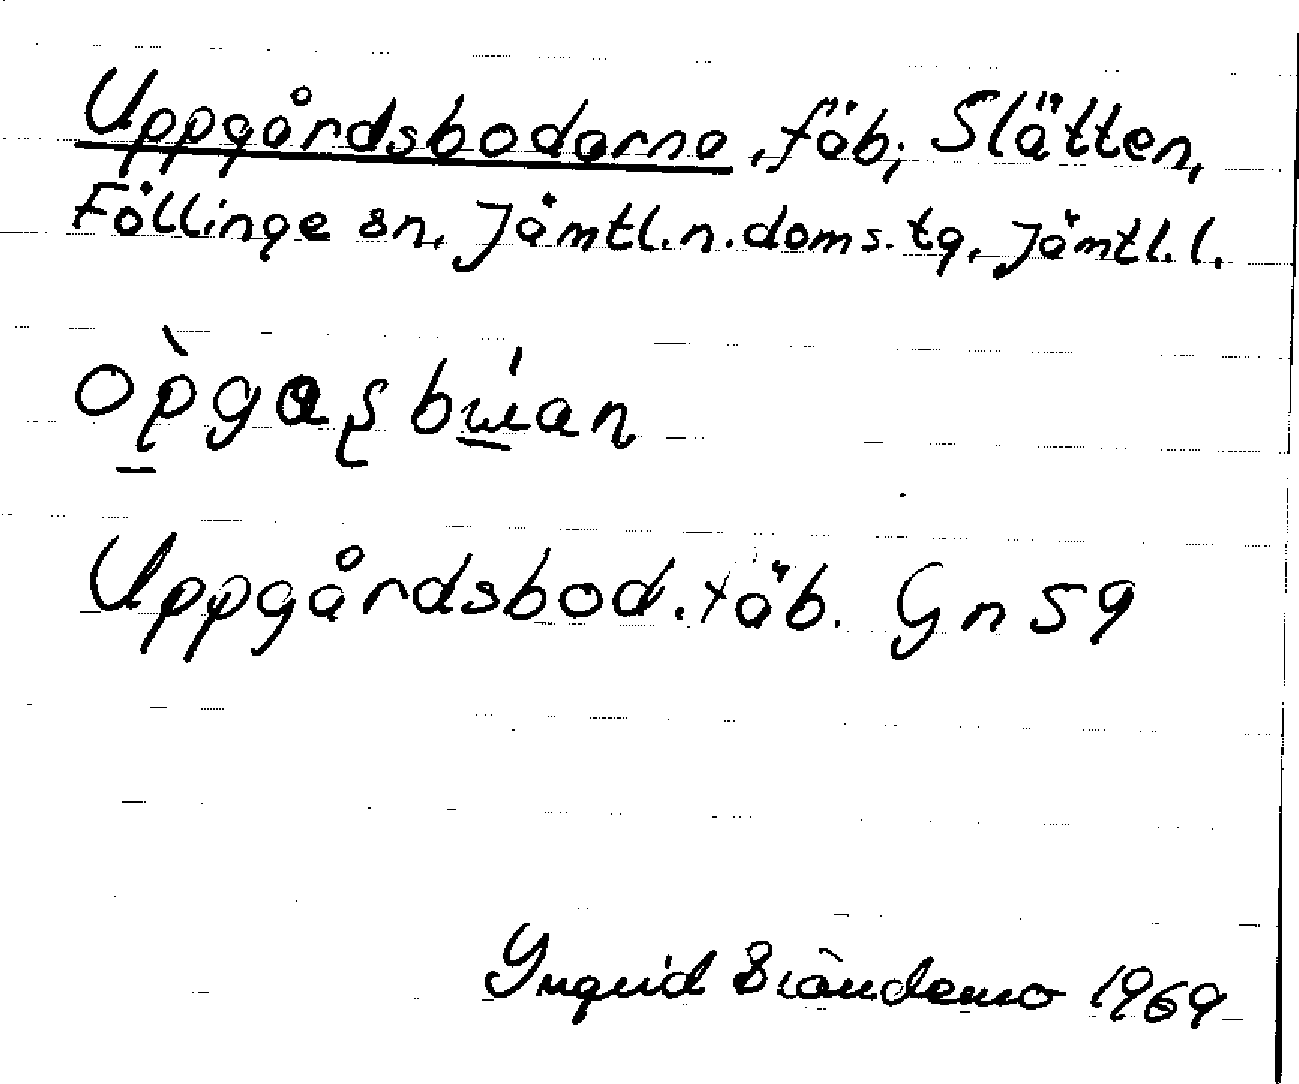 Uppgårdsbodarna, fäb; Slätten,
Föllinge sn, Jämtl. n. doms. tg, Jämtl. l.
Uppgårdsbod. fäb. Gn 59
Ingrid 1969